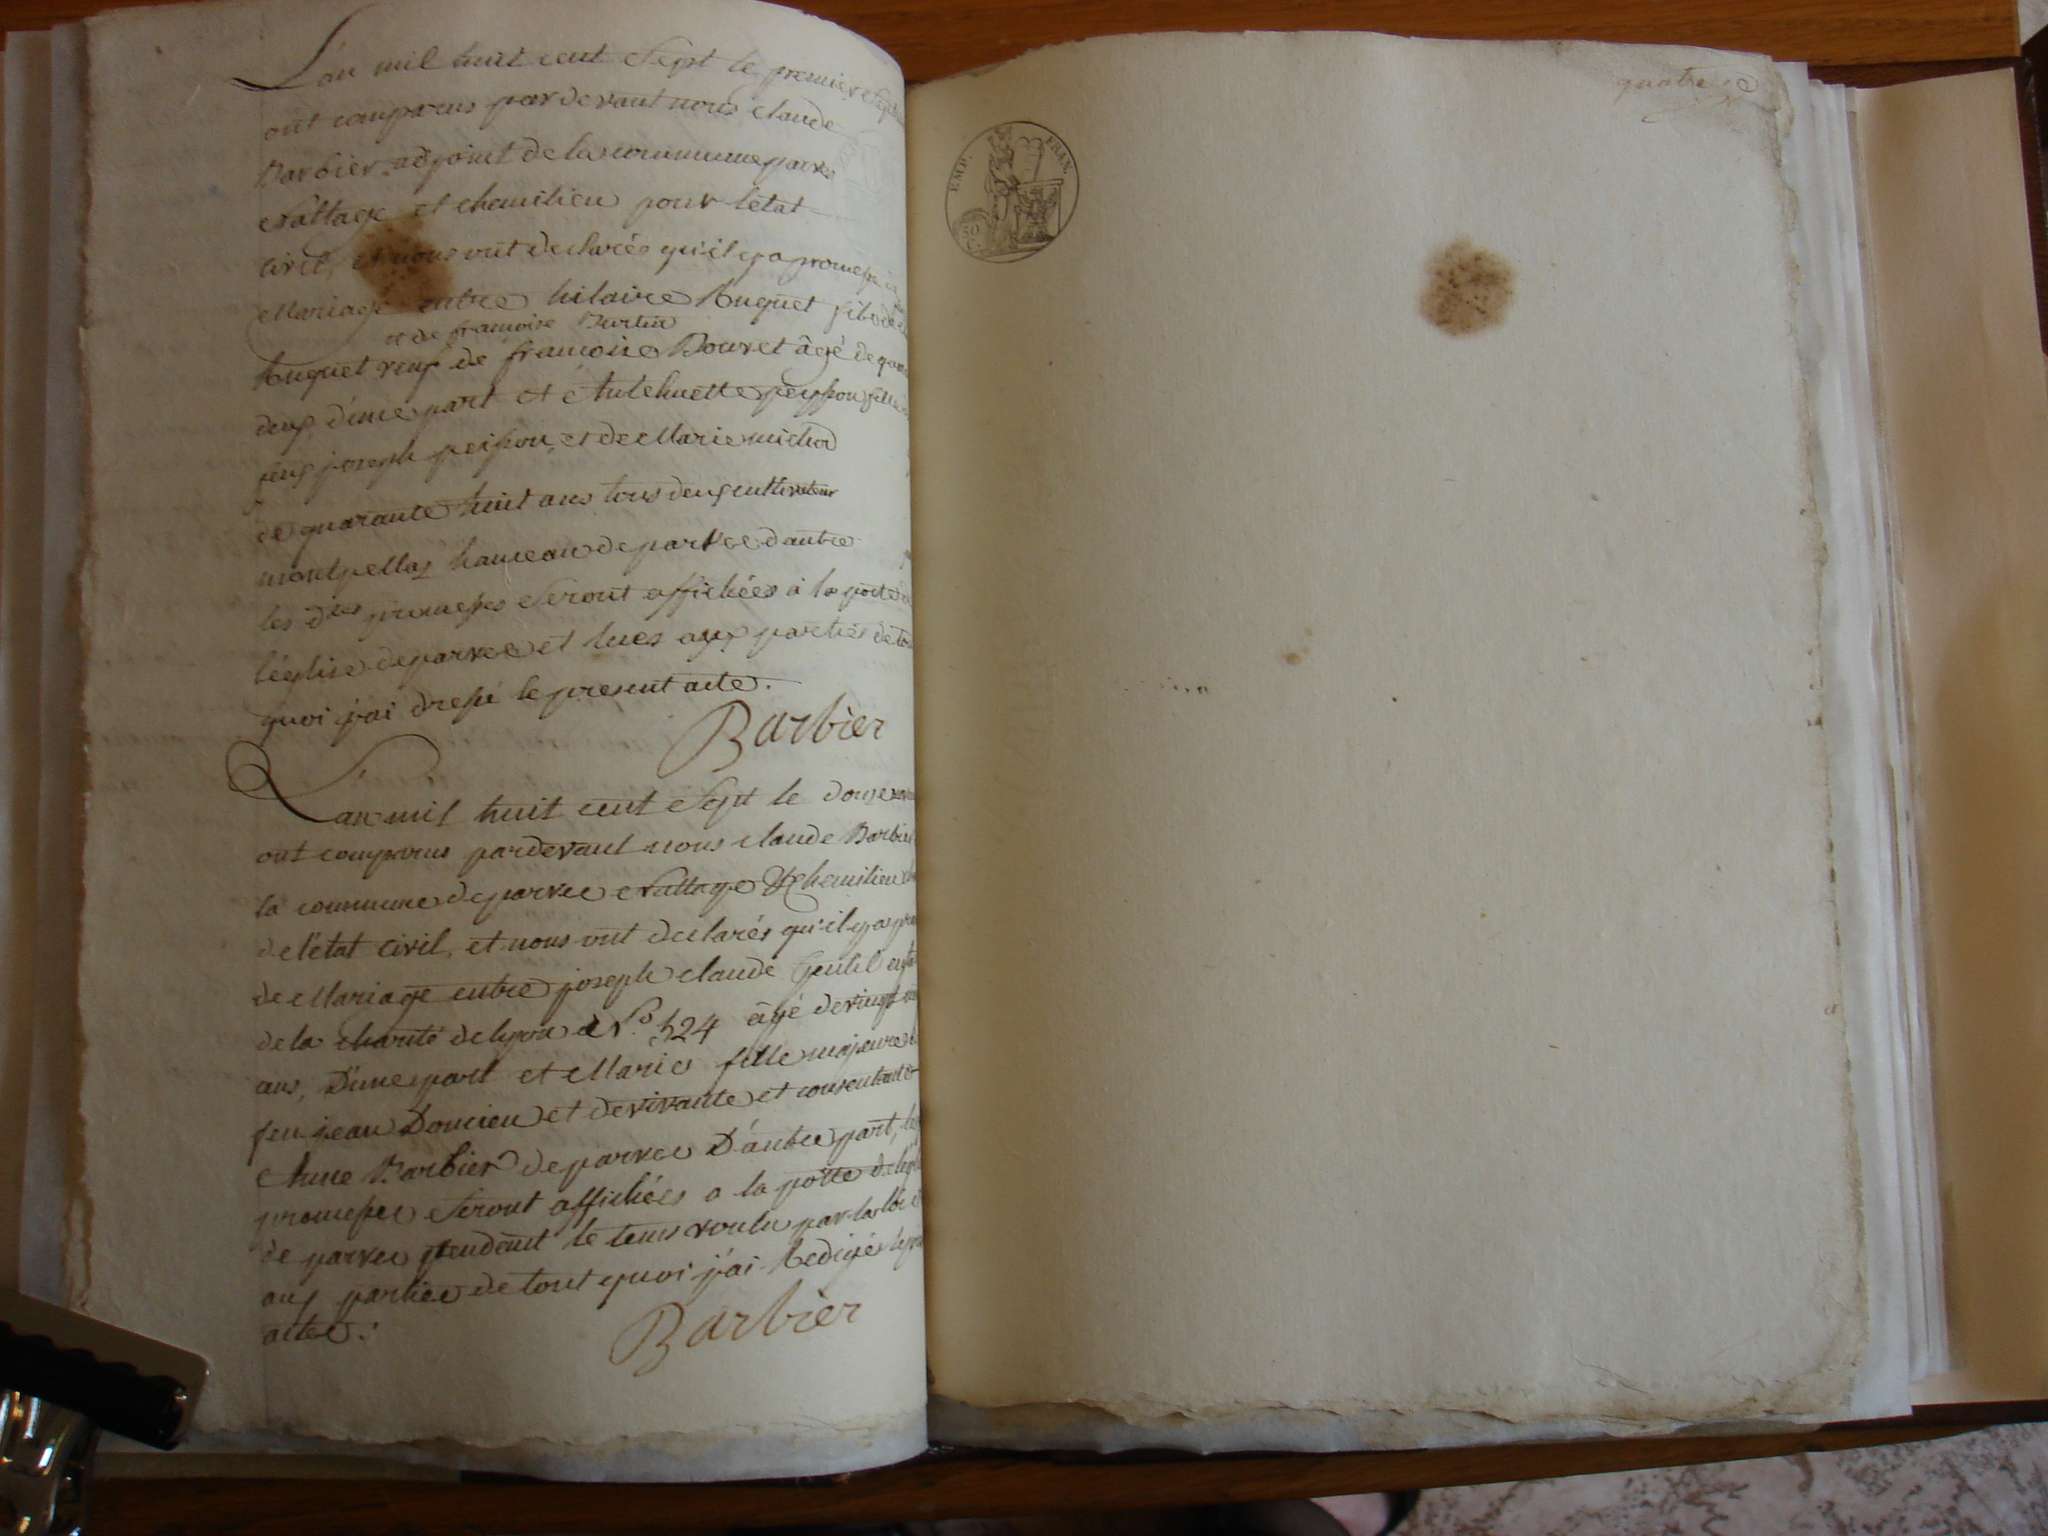 L'an mil huit cent Sept le premier
ont comparus pardevant nous claude
Barbier adjoint de la commune parve
Nattage et chemilieu pour l'etat
civil, et nous ont declarés qu'il y a promesse
Mariage entre hilaire huguet fils de
et de francoise
huguet veuf de francoise Bouvet âgé de
deux d'une part et Anthelmette peysson fille
feux joseph peisson, et de Marie michod
de quarante huit ans tous deux cultivateur
montpellaz hameau de parvee d'autre
les dtes promesses Seront affichées à la porte de
l'église de parvee et lues aux parties de tout
quoi j'ai dressé le present acte.
Barbier
L'an mil huit cent Sept le douze
ont comparus pardevant nous claude Barbier
la commune de parvee Nattage et chemilieu
de l'état civil, et nous ont declarés qu'il y a
de Mariage entre joseph claude Gentil
de la charité de lyon N.o 524 âgé de vingt
ans, D'une part et Marie fille majeure
feu jean Doncieu et de vivante et consentante
Anne Barbier de parvee D'autre part, les
promesse Seront affichées a la porte de
de parvee pendent le tems voulu par la loi
aux parties de tout quoi j'ai Redigés
acte.
Barbier
EMP. FRAN.
50
C.